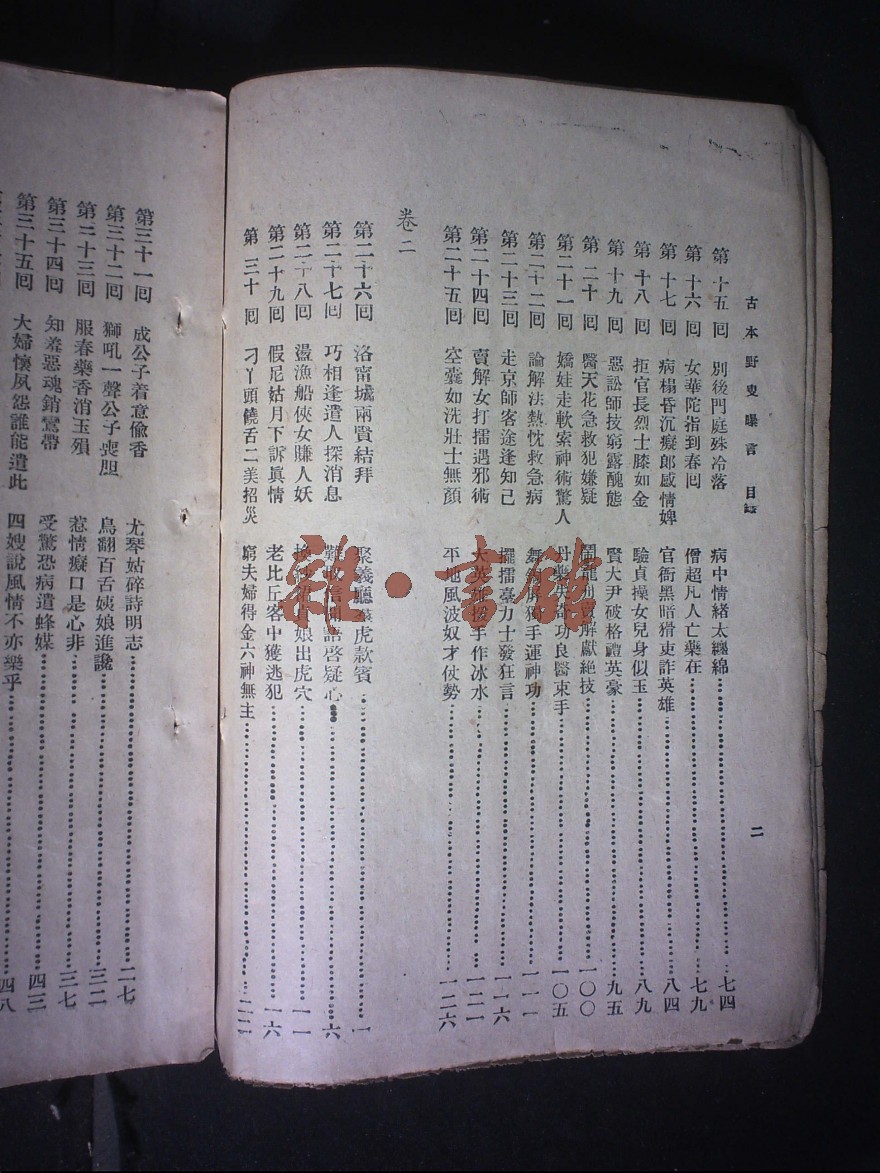 古本野叟曝言 目錄 二
第十五囘 別後門庭殊冷落 病中情緒太纏綿 七四
第十六囘 女華陀指到春囘 僧超凡人亡藥在 七九
第十七囘 病榻昏沉癡郎感情婢 官衙黑暗猾吏詐英雄 八四
第十八囘 拒官長烈士膝如金 驗貞操女兒身似玉 八九
第十九囘 惡訟師技窮露醜態 賢大尹破格禮英豪 九五
第二十囘 醫天花急救犯嫌疑 絕技 一〇〇
第二十一囘 嬌娃走軟索神術驚人 功良醫束手 一〇五
第二十二囘 論解法熱忱救急病 手運神功 一一一
第二十三囘 走京師客途逢知己 擺擂臺力士發狂言 一一六
第二十四囘 賣解女打擂遇邪術 手作冰水 一二一
第二十五囘 空囊如洗壯士無顏 平地風波奴才仗勢 一二六
卷二
第二十六囘 洛甯城兩賢結拜 聚義廳羣虎款賓 一
第二十七囘 巧相逢遣人探消息 啓疑心 六
第二十八囘 盪漁船俠女賺人妖 娘出虎穴 一一
第二十九囘 假尼姑月下訴眞情 老比丘客中獲逃犯 一六
第三十囘 刁丫頭饒舌二美招災 窮夫婦得金六神無主 二二
第三十一囘 成公子着意偸香 尤琴姑碎詩明志 二七
第三十二囘 獅吼一聲公子喪胆 鳥翻百舌姨娘進讒 三二
第三十三囘 服春藥香消玉殞 惹情癡口是心非 三七
第三十四囘 知羞惡魂銷鸞帶 受驚恐病遣蜂媒 四三
第三十五囘 大婦懷夙怨誰能遣此 四嫂說風情不亦樂乎 四八
雜書館